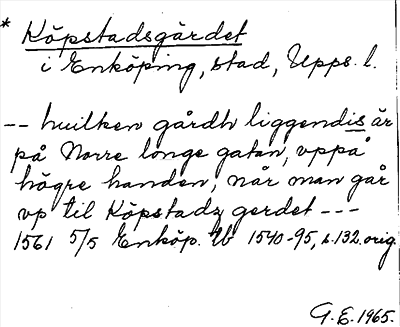 * Köpstadsgärdet
i Enköping, stad, Upps. l.
-- huilken gårdh liggendis är
på Norre longe gatan, vppå
högre handen, når man går
vp til Köpstadz gerdet ---
1561 5/5 Enköp. tb 1540-95, s. 132. orig.
G. E. 1965.